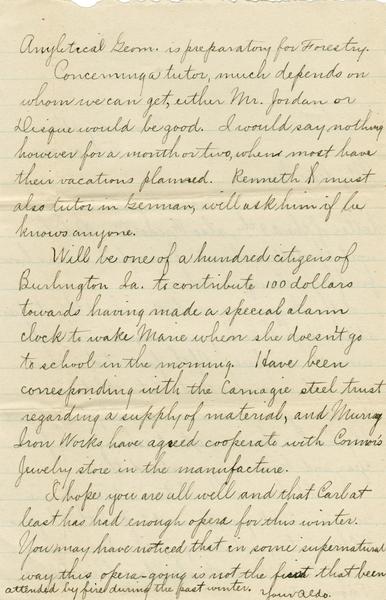 Anylitical Geom. is preparatory for Forestry.
Concerning a tutor, much depends on
whom we can get, either Mr. Jordan or
Disque would be good. I would say nothing
however for a month or two, when most have
their vacations planned. Kenneth & must
also tutor in German, will ask him if he
knows anyone.
Will be one of a hundred citizens of
Burlington Ia. to contribute 100 dollars
towards having made a special alarm
clock to wake Marie when she doesn't go
to school in the morning. Have been
corresponding with the Carnagie steel trust
regarding a supply of material, and Murray
Iron Works have agreed cooperate with Connors
Jewelry store in the manufacture.
I hope you are all well and that Carl at
least has had enough opera for this winter.
You may have noticed that in some supernatural
way this opera-going is not the first that been
attended by fire during the past winter.
Your Aldo.